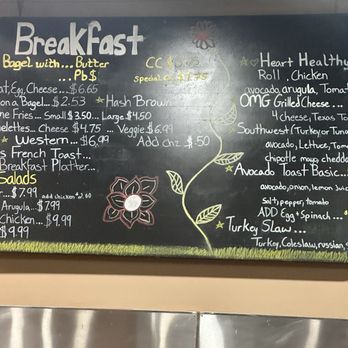 Breakfast
Bagel with... Butter
... Pb$
CC
Special C
at, Egg, Cheese... $6.65
on a Bagel... $2.53
Hash Brown
ne Fries... Small $3.50... Large $4.50
elettes... Cheese $4.75 ... Veggie $6.99
Western... $6.99
Add chz. $.50
s French Toast...
Breakfast Platter...
Salads
r... $7.99 add chicken
Arugula... $7.99
Chicken... $9.99
$9.99
Heart Healthy
Roll . Chicken
avocado, arugula, Tomat
OMG Grilled Cheese...
4 cheese, Texas To
Southwest (Turkey or Tuna
avocado, Lettuce, Tomat
chipotle mayo, chedda
Avocado Toast Basic...
avocado, onion, lemon juic
Salt, pepper, tomato
ADD Egg + Spinach...
Turkey Slaw...
Turkey, Coleslaw, russian, S